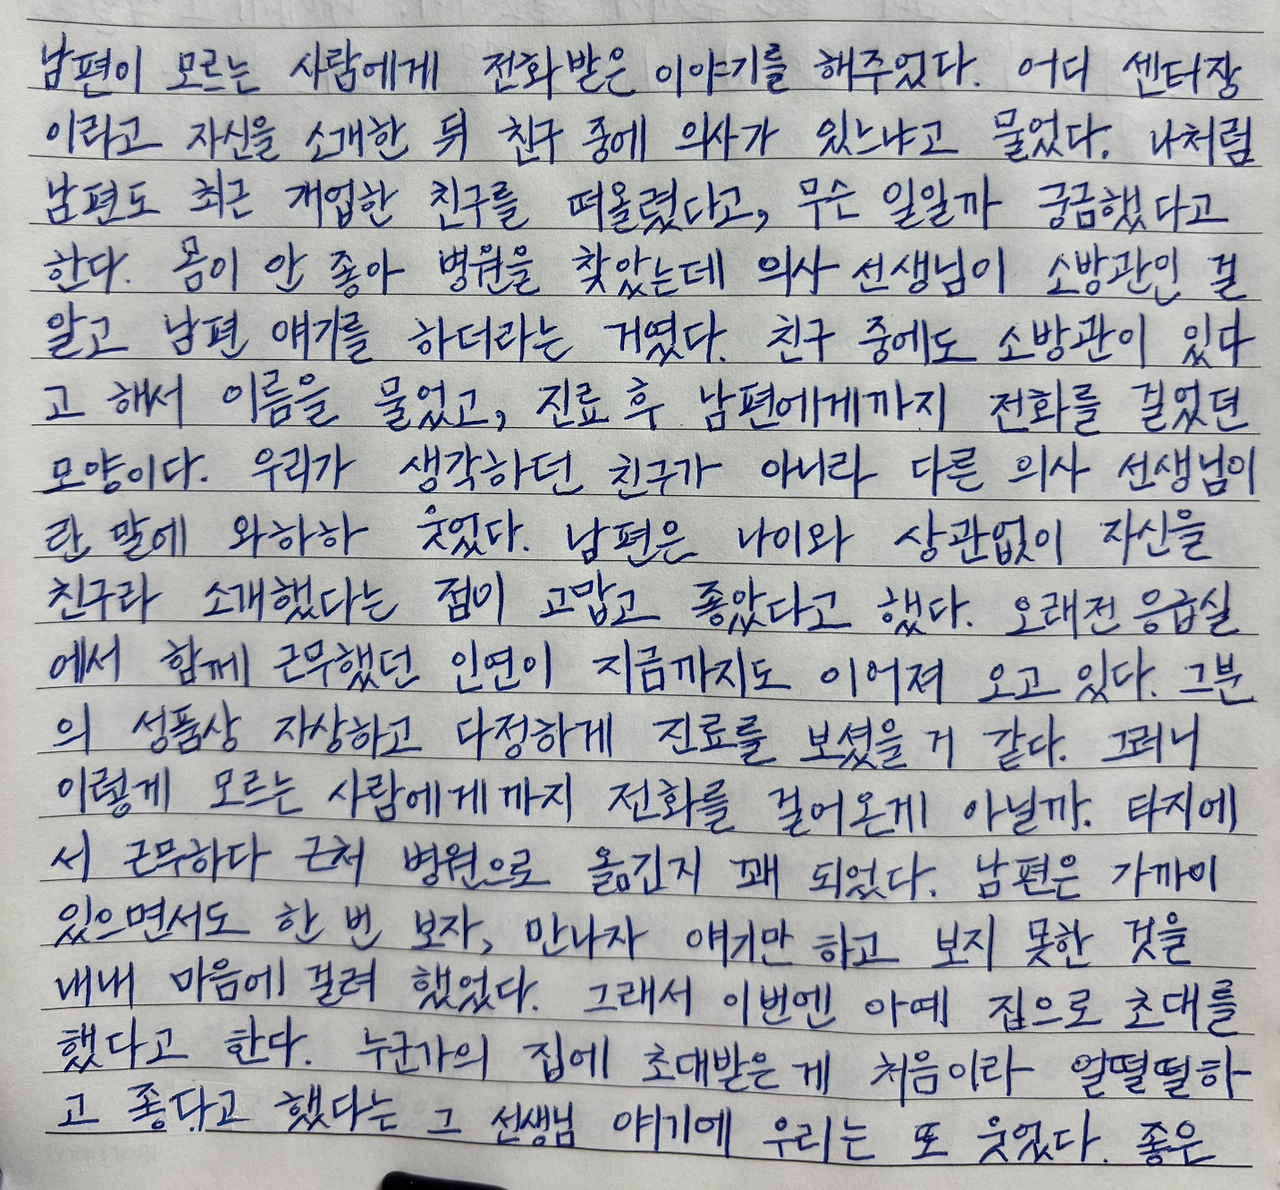 남편이 모르는 사람에게 전화받은 이야기를 해주었다. 어디 센터장
이라고 자신을 소개한 뒤 친구 중에 의사가 있느냐고 물었다. 나처럼
남편도 최근 개업한 친구를 떠올렸다고, 무슨 일일까 궁금했다고
한다. 몸이 안 좋아 병원을 찾았는데 의사 선생님이 소방관인 걸
알고 남편 얘기를 하더라는 거였다. 친구 중에도 소방관이 있다
고 해서 이름을 물었고, 진료 후 남편에게까지 전화를 걸었던
모양이다. 우리가 생각하던 친구가 아니라 다른 의사 선생님이
란 말에 와하하 웃었다. 남편은 나이와 상관없이 자신을
친구라 소개했다는 점이 고맙고 좋았다고 했다. 오래전 응급실
에서 함께 근무했던 인연이 지금까지도 이어져 오고 있다. 그분
의 성품상 자상하고 다정하게 진료를 보셨을 거 같다. 그러니
이렇게 모르는 사람에게까지 전화를 걸어온게 아닐까. 타지에
서 근무하다 근처 병원으로 옮긴지 꽤 되었다. 남편은 가까이
있으면서도 한 번 보자, 만나자 얘기만 하고 보지 못한 것을
내내 마음에 걸려 했었다. 그래서 이번엔 아예 집으로 초대를
했다고 한다. 누군가의 집에 초대받은 게 처음이라 얼떨떨하
고 좋다고 했다는 그 선생님 얘기에 우리는 또 웃었다. 좋은